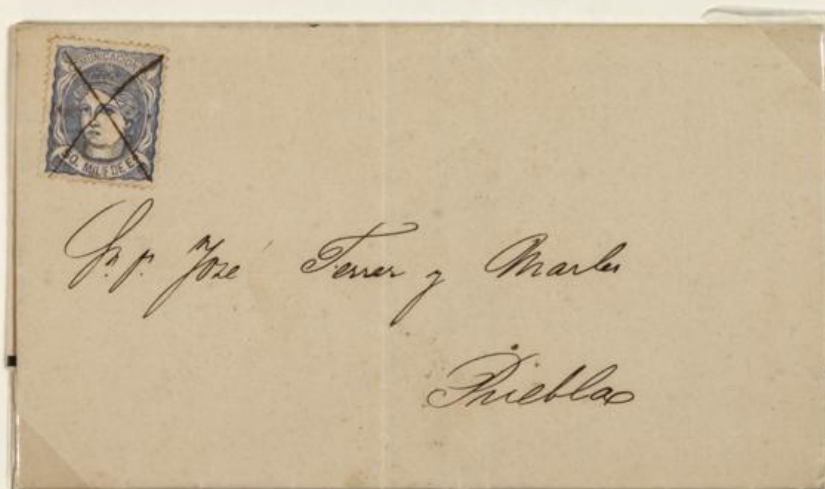 COMUNICACIONES
50. MILS DE E.
Sr. Dn. José Ferrer y Marles
Puebla